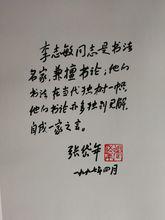 李志敏同志是书法
名家，兼擅书论，他的
书法在当代独树一帜，
他的书论亦多独到见解，
自成一家之言。
张岱年
一九九七年四月